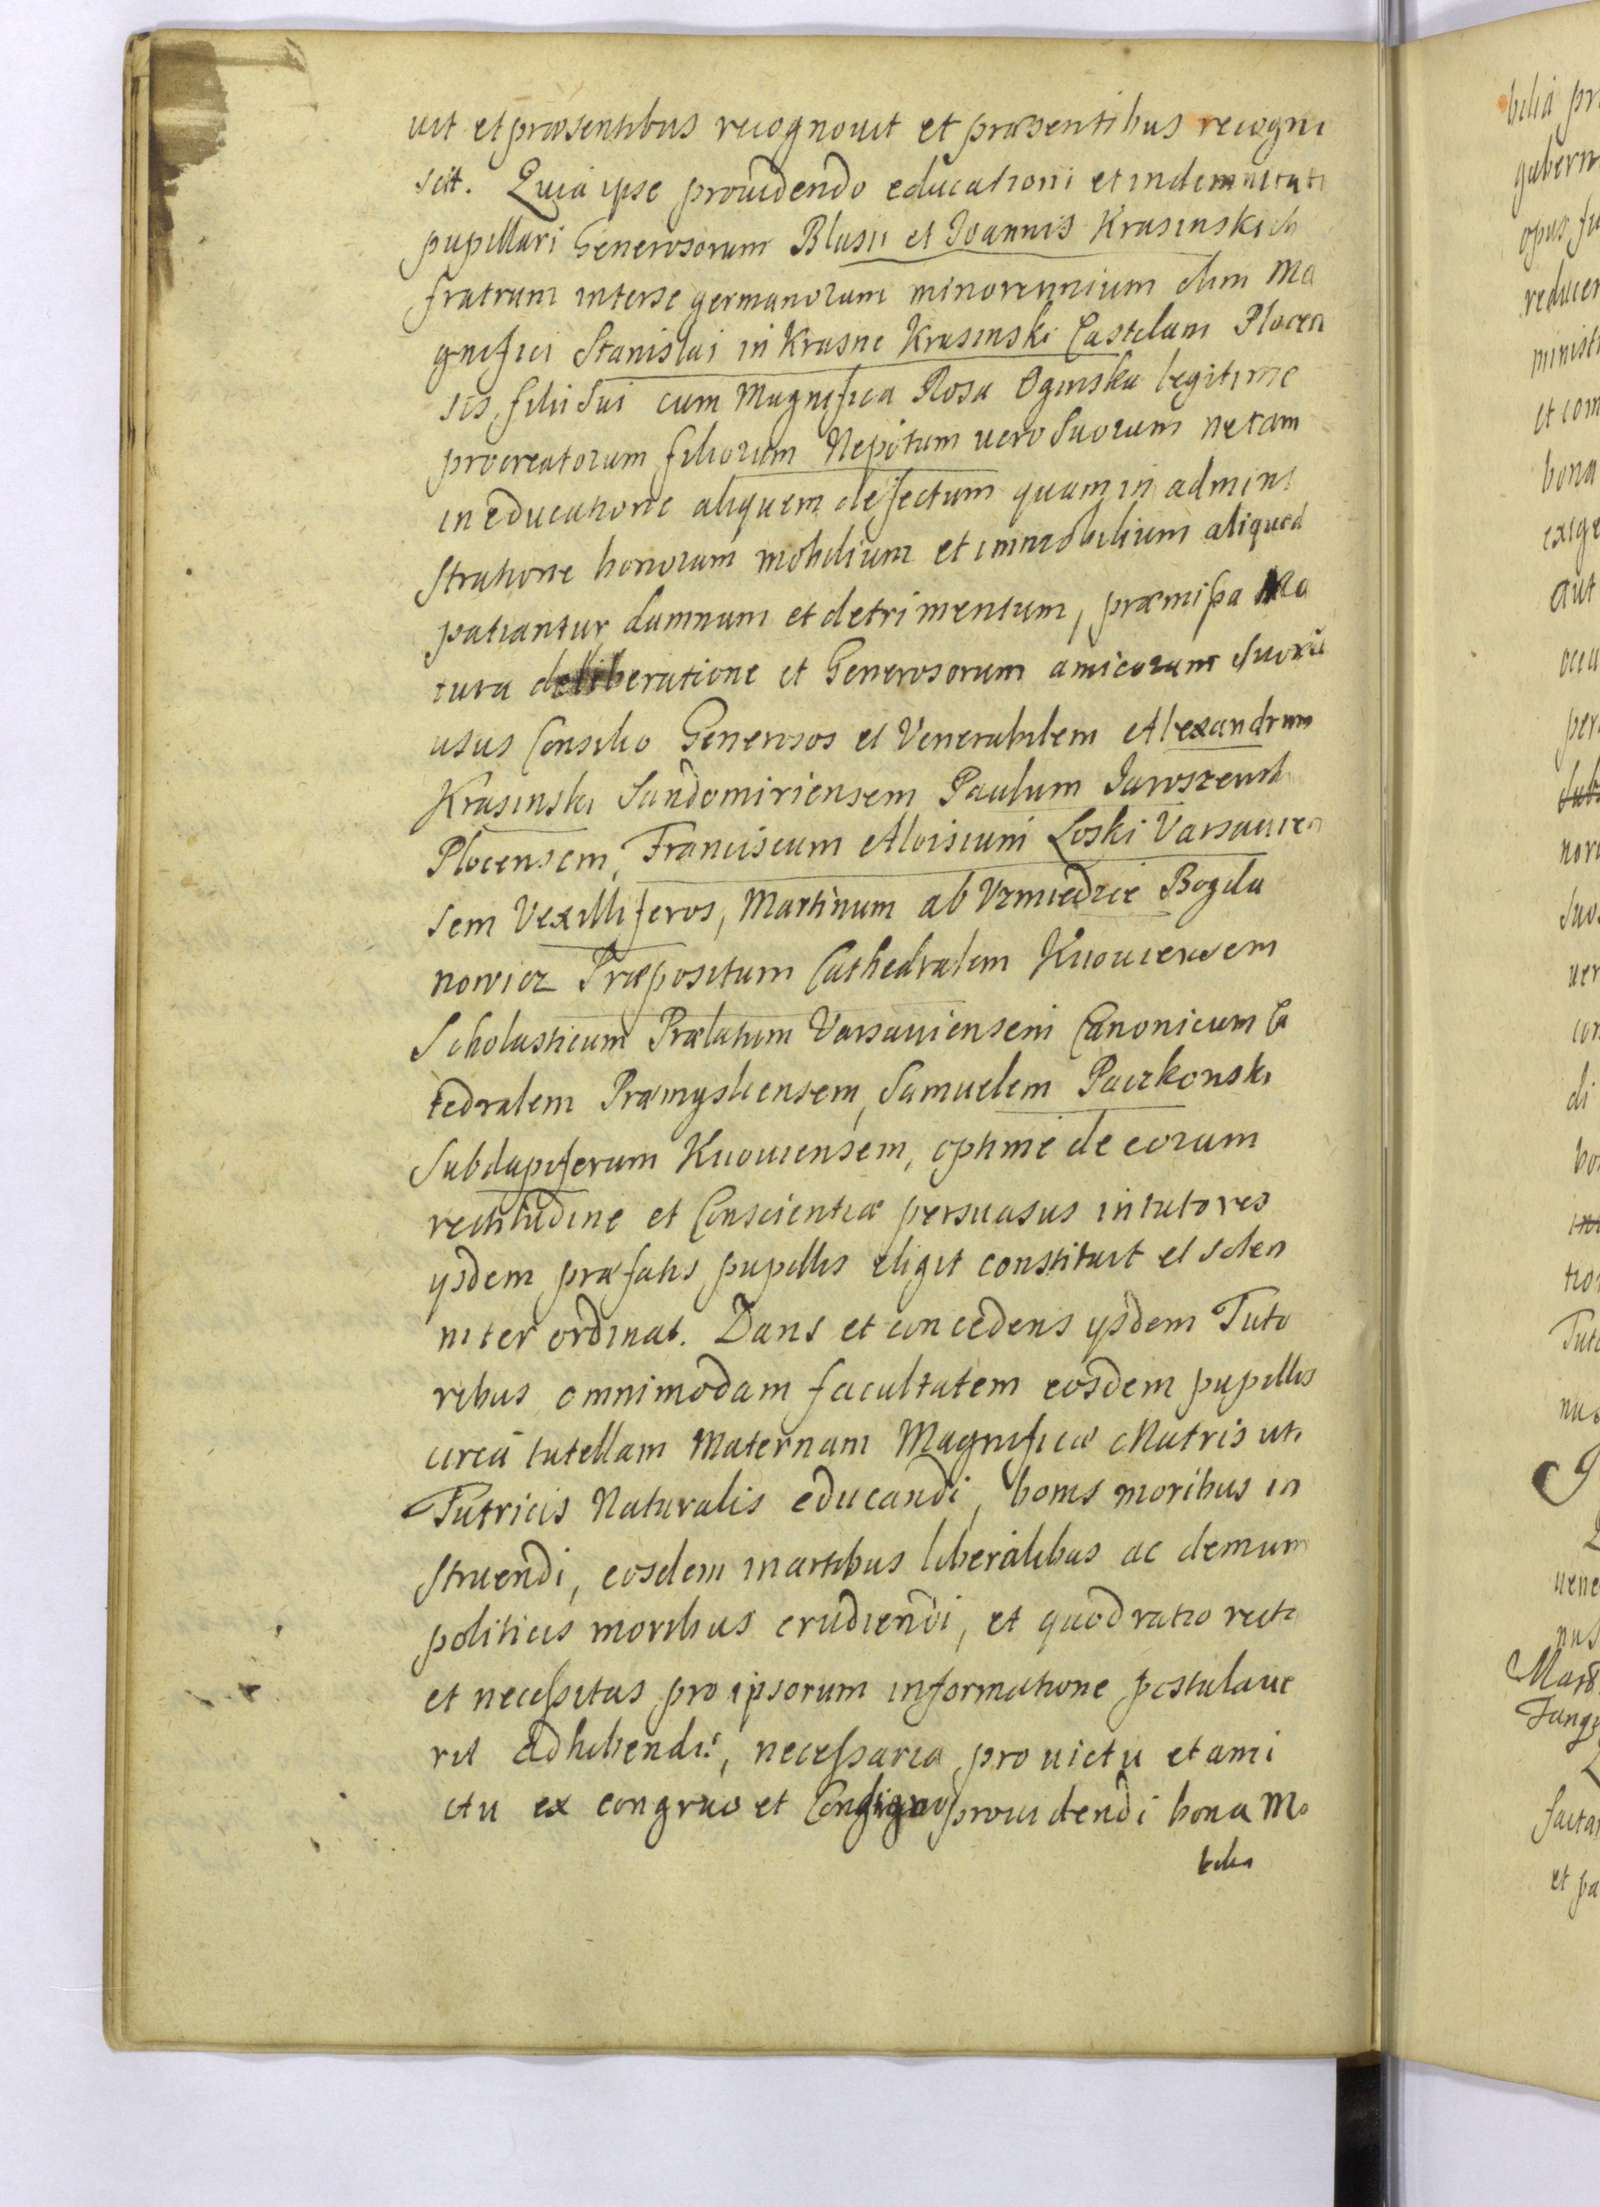 uit et præsentibus recognouit et præsentibus recogni
scit. Quia ipse prouidendo educationi et indemnitati
pupillari Generosorum Blasii et Ioannis Krasinskich
fratrum interse germanorum minorennium olim Ma
gnifici Stanislai in Krasne Krasinski Castelani Plocen
sis, filii Sui cum Magnifica Rosa Oginska legitime
procreatorum filiorum Nepotum uero Suorum ne tam
in educatione aliquem defectum quam in admini
stratione bonorum mobilium et immobilium aliquod
patiantur damnum et detrimentum, præmissa Ma
tura deliberatione et Generosorum amicorum Suorū
usus Consilio Generosos et Venerabilem Alexandrum
Krasinski Sandomiriensem Paulum Jaroszewski
Plocensem, Franciscum Aloisium Loski Varsauien
sem Vexilliferos, Martinum ab Vrmiedzie Bogda
nowicz Præpositum Cathedralem Kiiouiensem
Scholasticum Prælatum Varsauiensem Canonicum Ca
tedralem Præmysliensem, Samuelem Paczkowski
Subdapiferum Kiiouiensem, optime de eorum
rectitudine et Conscientiæ persuasus in tutores
ysdem præfatis pupillis eligit constituit et solen
niter ordinat. Dans et concedens ysdem Tuto
ribus omnimodam facultatem eosdem pupillos
circa tutellam Maternam Magnificæ Matris uti
Tutricis Naturalis educandi, bonis moribus in
struendi, eosdem in artibus liberalibus ac demum
politicis moribus erudiendi, et quod ratio recta
et necessitas pro ipsorum informatione postulaue
rit adhibendi, necessaria pro uictu et ami
ctu ex congruo et Condigno prouidendi bona Mo
bilia
bilia pr
gubern
opus fu
reducen
minist
et com
bona
exige
aut
occu
per
nor
Suo
uer
con
di
bo
tio
Tuto
na
uene
nus
facta
et pa